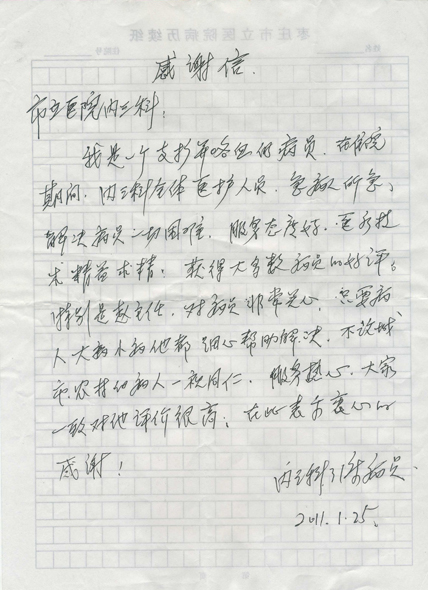 枣庄市立医院病历续纸
感谢信.
市立医院内三科:
我是一个支扩并咯血的病员.在住院
期间.内三科全体医护人员.急病人所急,
解决病员一切困难.服务态度好.医疗技
术精益求精.获得大多数病员的好评。
特别是赵主任.对病员非常关心.只要病
人大病小病他都细心帮助解决.不论城
市.农村他病人一视同仁.服务热心.大家
一致对他评价很高;在此表示衷心的
感谢!
内三科 床病员.
2011.1.25.